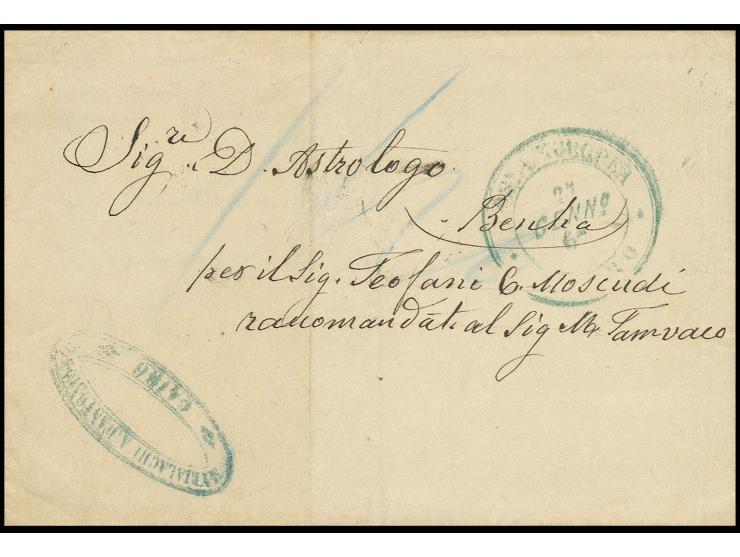 Sig.re D. Astrologo
Benha
per il Sig. Teofani C. Moscudi
racomandăti al Sig M. Tamvaco
POSTA EUROPEA
27
GENNº
CAIRO
CAIRO